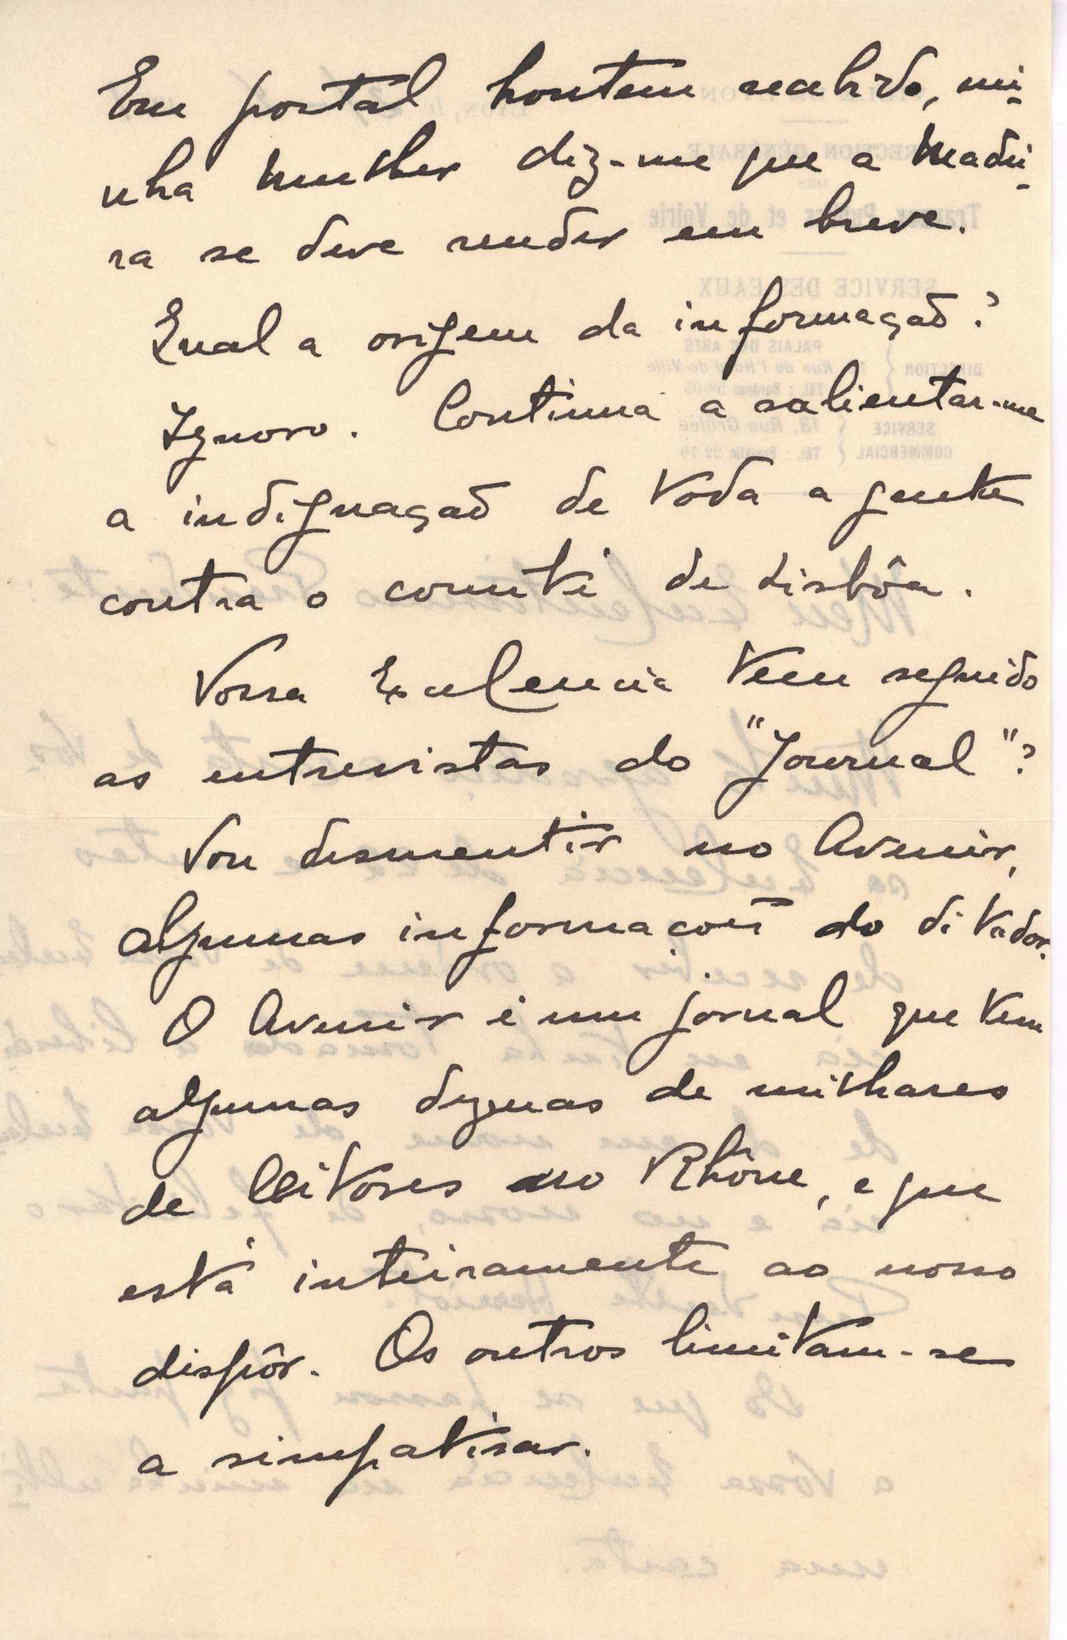 Em postal hontem recebido, mi-
nha mulher diz-me que a Madei-
ra se deve render em breve.
Qual a origem da informação?
Ignoro. Continua a salientar-me
a indignação de toda a gente
contra o comité de Lisbôa.
Vossa Excelencia tem seguido
as entrevistas do "Journal"?
Vou desmentir no Avenir,
algumas informações do ditador.
O Avenir é um jornal que tem
algumas dezenas de milhares
de leitores no Rhône, e que
está inteiramente ao nosso
dispôr. Os outros limitam-se
a simpatisar.